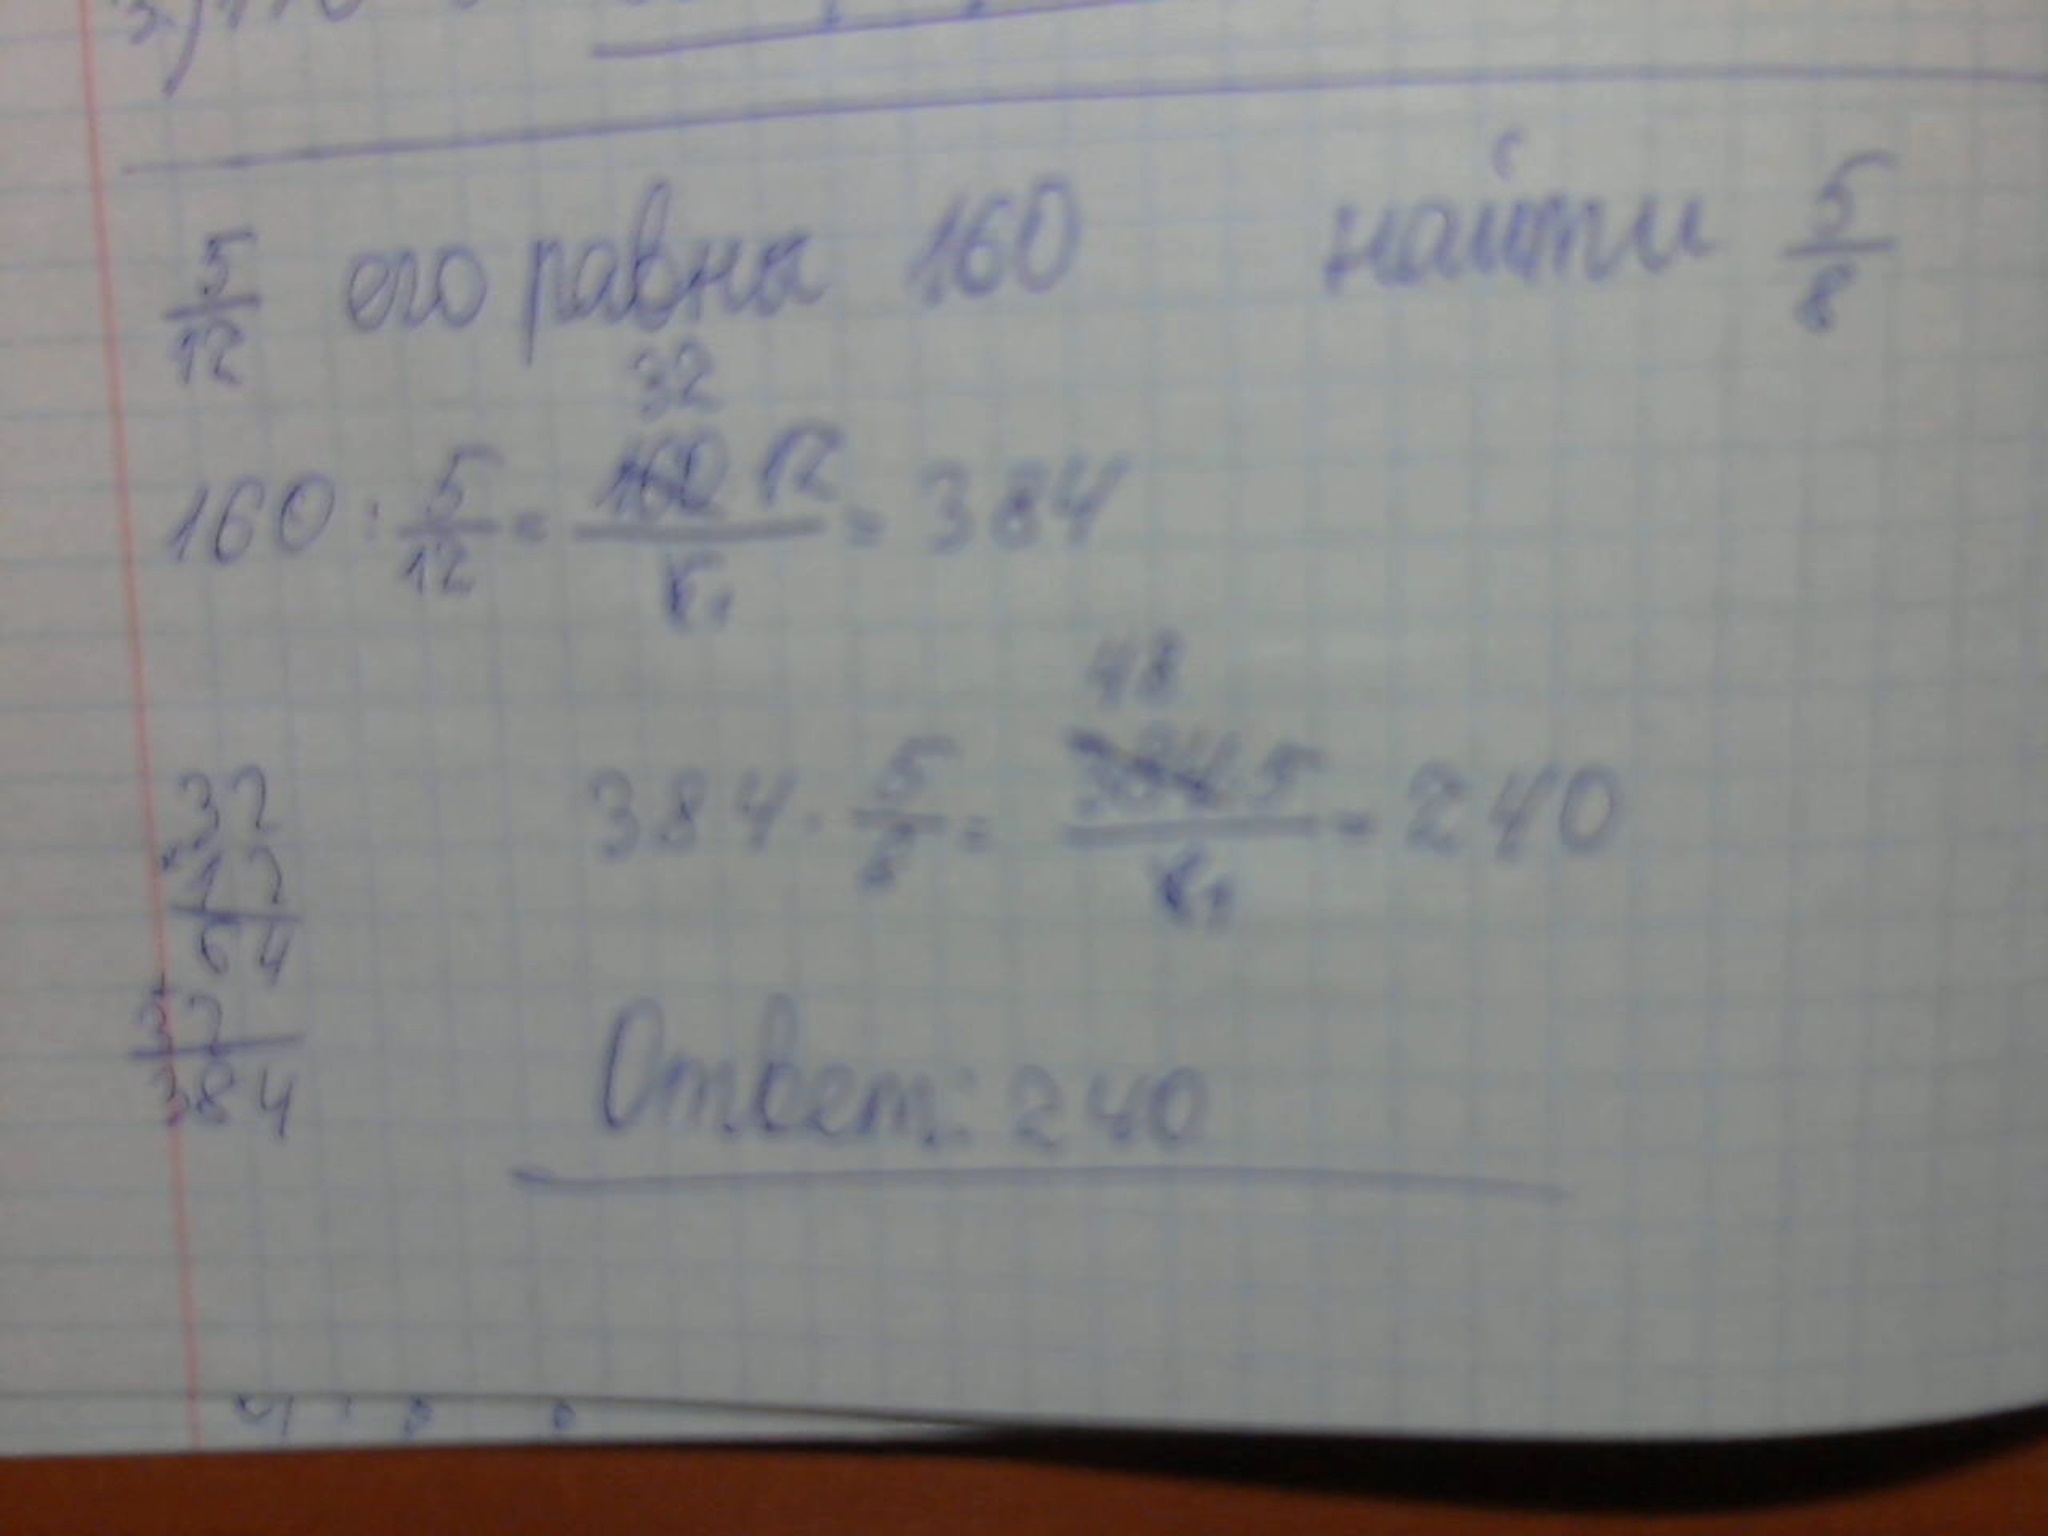 5/12 его равны 160 найти 5/8
32
160 : 5/12 = 160 12 / 5 1 = 384
48
384 · 5/8 = 384 5 / 8 1 = 240
32
× 12
64
+ 32
384
Ответ: 240